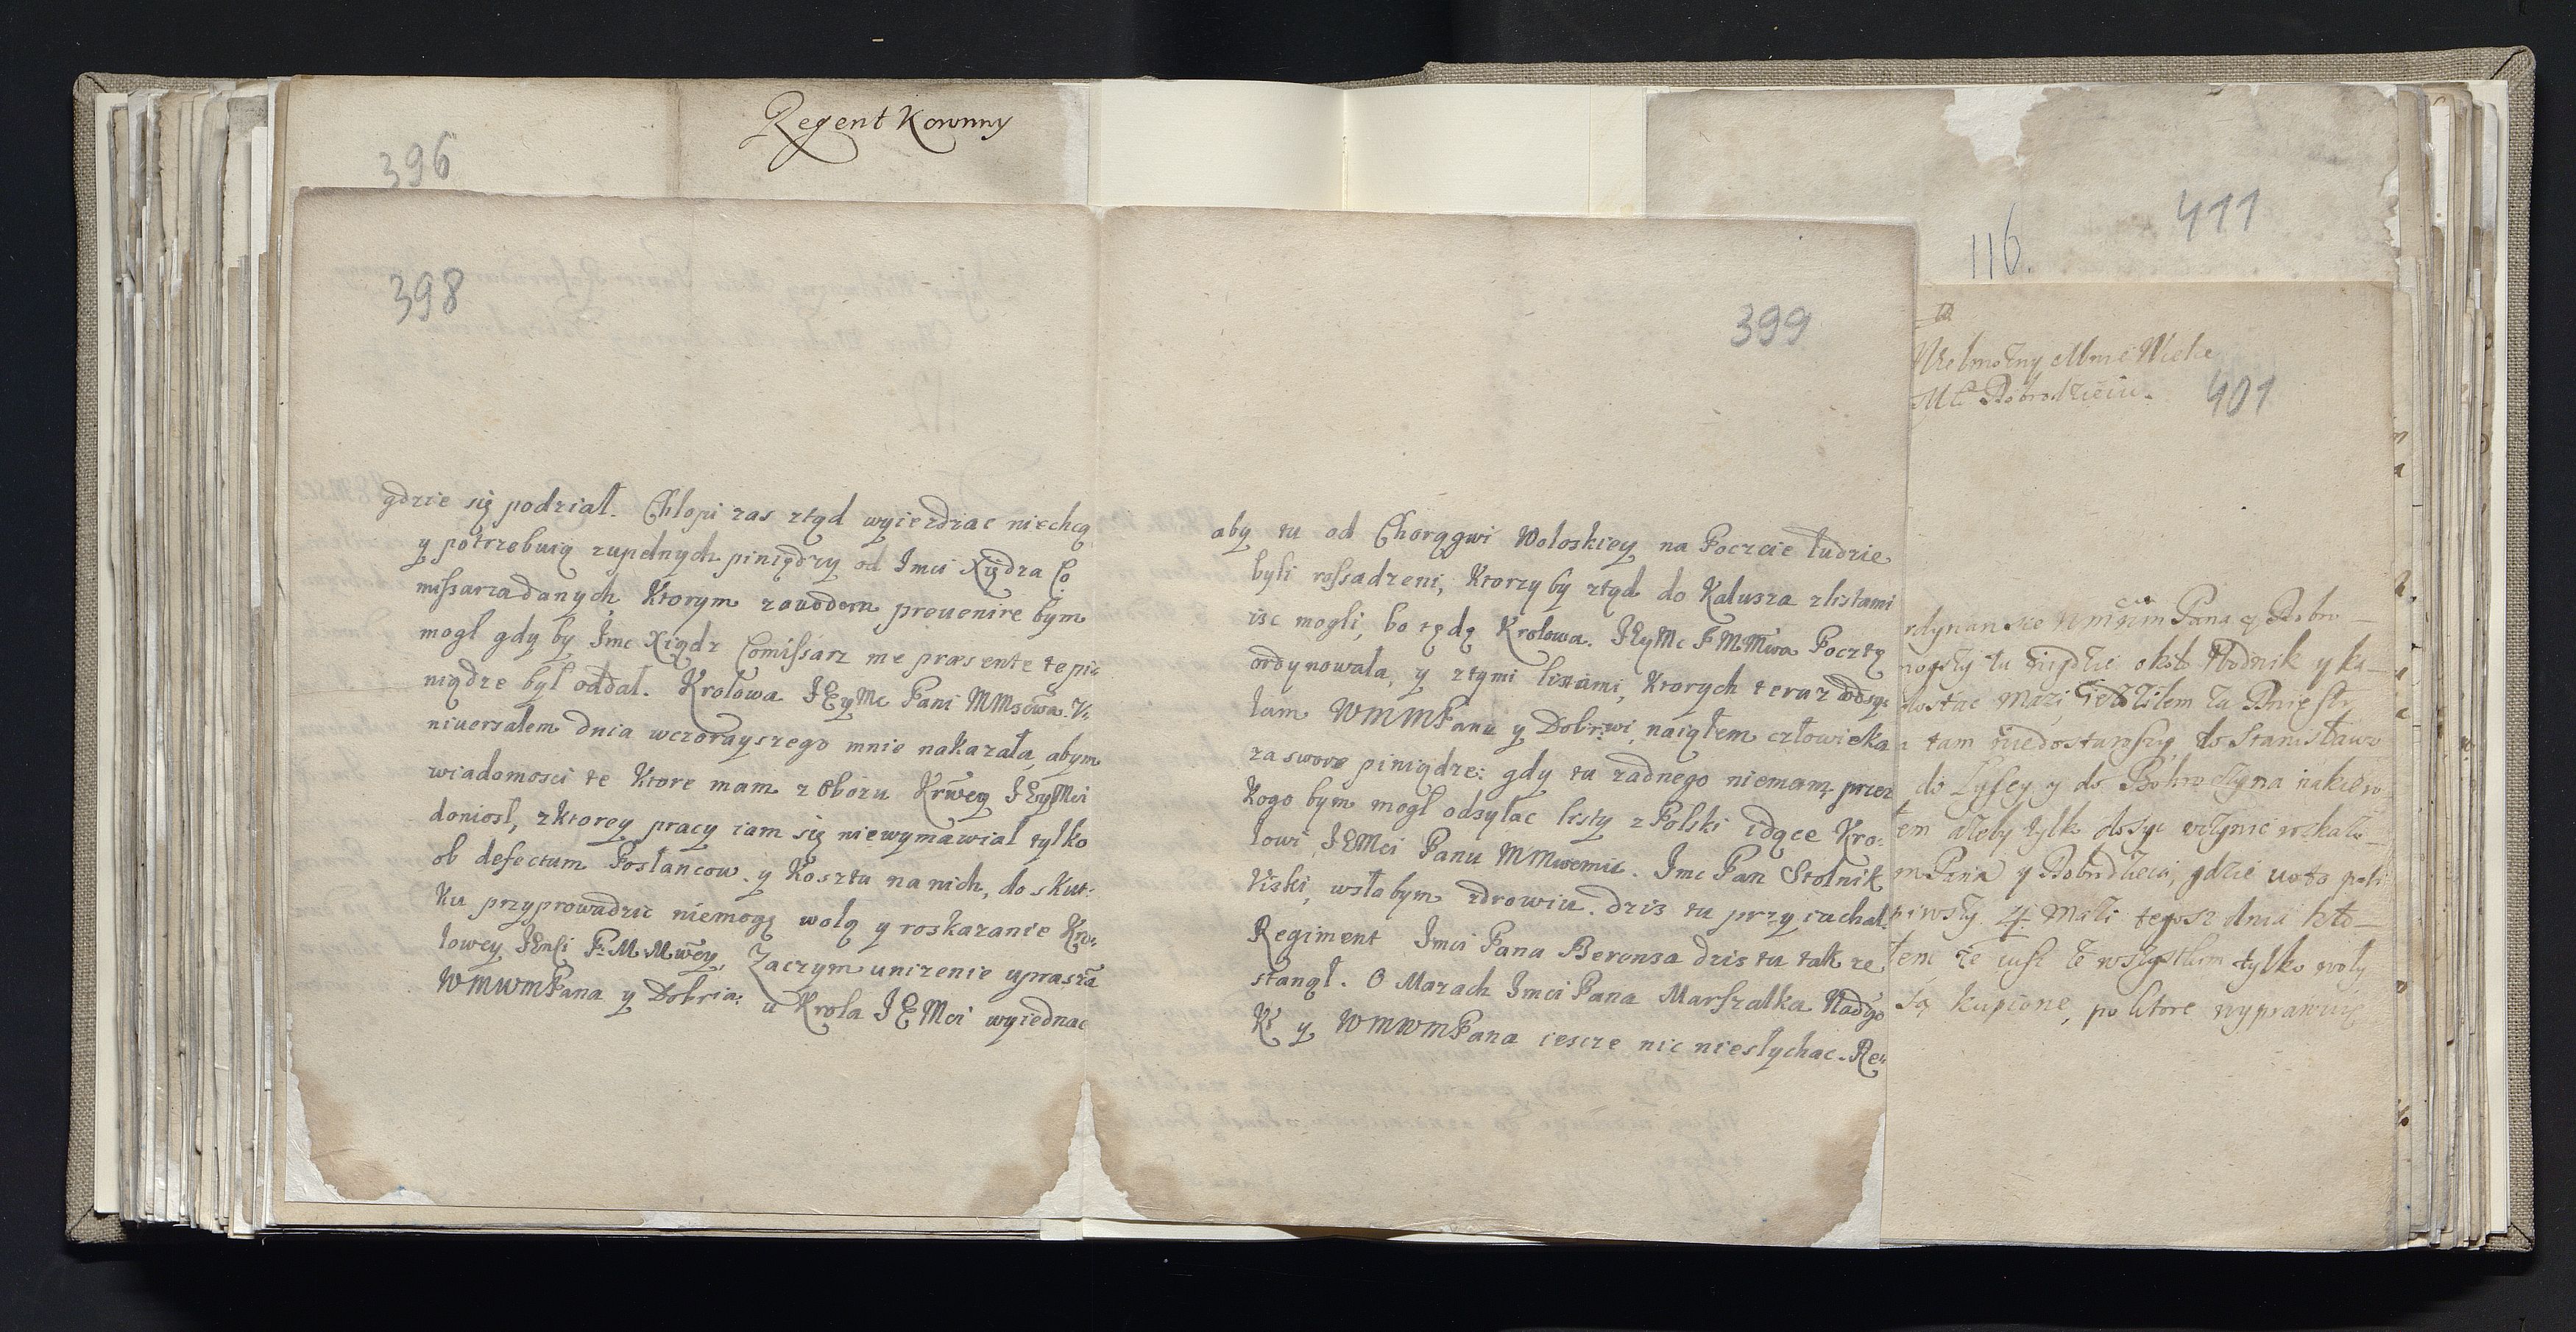 Regent Koronny
396
398
gdzie się podział. Chłopi zas ztąd wyiezdzac niechcą
y potrzebuią zupełnych piniędzy od Imci Xiędza Co
missarza danych, Ktorym zawodom prevenire bym
mogł gdy by Imc Xiądz Comissarz me præsente te pie
niądze był oddał. Krolowa JEyMc Pani MMsciwa V:
niuersałem dnia wczorayszego mnie nakazała, abym
wiadomosci te Ktore mam z Obozu Krwey JEyMci
doniosł, z ktorey pracy iam się niewymawiał tylko
ob defectum Posłancow y Kosztu na nich, do skut:
Ku przyprowadzic niemogę wolą y roskazanie Kro:
lowey JEMci P. M Mwey. Zaczym unizenie uprasza
WMWMPana y Dobria: u Krola JEMci wyiednac
399
aby tu od Chorągwi Wołoskiey na Poczcie ludzie
byli rossadzeni, Ktorzy by ztąd do Kałusza z listami
isc mogli, bo tędę Krolowa JEyMc P MMwa Pocztę
ordynowała, y z tymi listami, Ktorych teraz odsy:
łam WMMPanu y Dobr:wi naiąłem człowieka
za swoie piniądze: gdy tu zadnego niemam przez
Kogo bym mogł odsyłac listy z Polski idące Kro:
lowi JEMci Panu MMwemu. Imc Pan Stolnik
Liski, w słabym zdrowiu dzis tu przyiachał.
Regiment Imci Pana Berensa dzis tu tak ze
stanął. O Mazach Imci Pana Marszałka Nadgo
Kr y WMWMPana iescze nic niesłychac. Re:
411
116.
Wielmozny Mnie Wielce
Mci Dobrodzieiu.
401
rdynanse WmMm Pana y Dobro
nogszy tu nigdzie około Wodnik y ka
dostac Mazi, iezdziłem za Dniestr
tam niedostawszy, do Stanisławo
do Łysey y do Bohrodczyna nakiero
em azeby tylko dosyc vczynic wskazo
m Pana y Dobrodzieia, gdzie
piwszy 4. Mazi tegosz dnia
tem ze iusz ze wszystkim tylko woły
Są kupione, po ktore wyprawuię